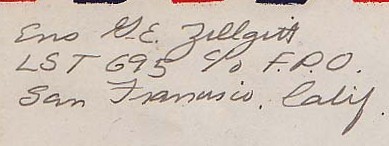 Ens G.E. Zellgitt
LST 695 c/o F.P.O.
San Francisco, Calif.